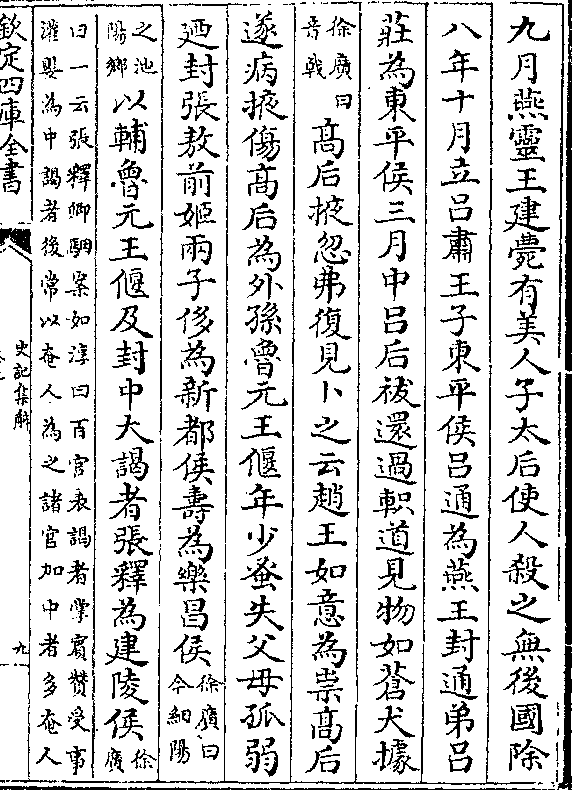 九月燕靈王建薨有美人子太后使人殺之無後國除
八年十月立呂肅王子東平侯呂通為燕王封通弟呂
莊為東平侯三月中呂后祓還過軹道見物如蒼犬據
徐廣曰
音戟
高后掖忽弗復見卜之云趙王如意為祟高后
遂病掖傷高后為外孫魯元王偃年少蚤失父母孤弱
廼封張敖前姬兩子侈為新都侯壽為樂昌侯
徐廣曰
今細陽
之池
陽鄉
以輔魯元王偃及封中大謁者張釋為建陵侯
徐
廣
曰一云張釋卿駰案如淳曰百官表謁者掌賓贊受事
灌嬰為中謁者後常以奄人為之諸官加中者多奄人
欽定四庫全書
史記集解
九